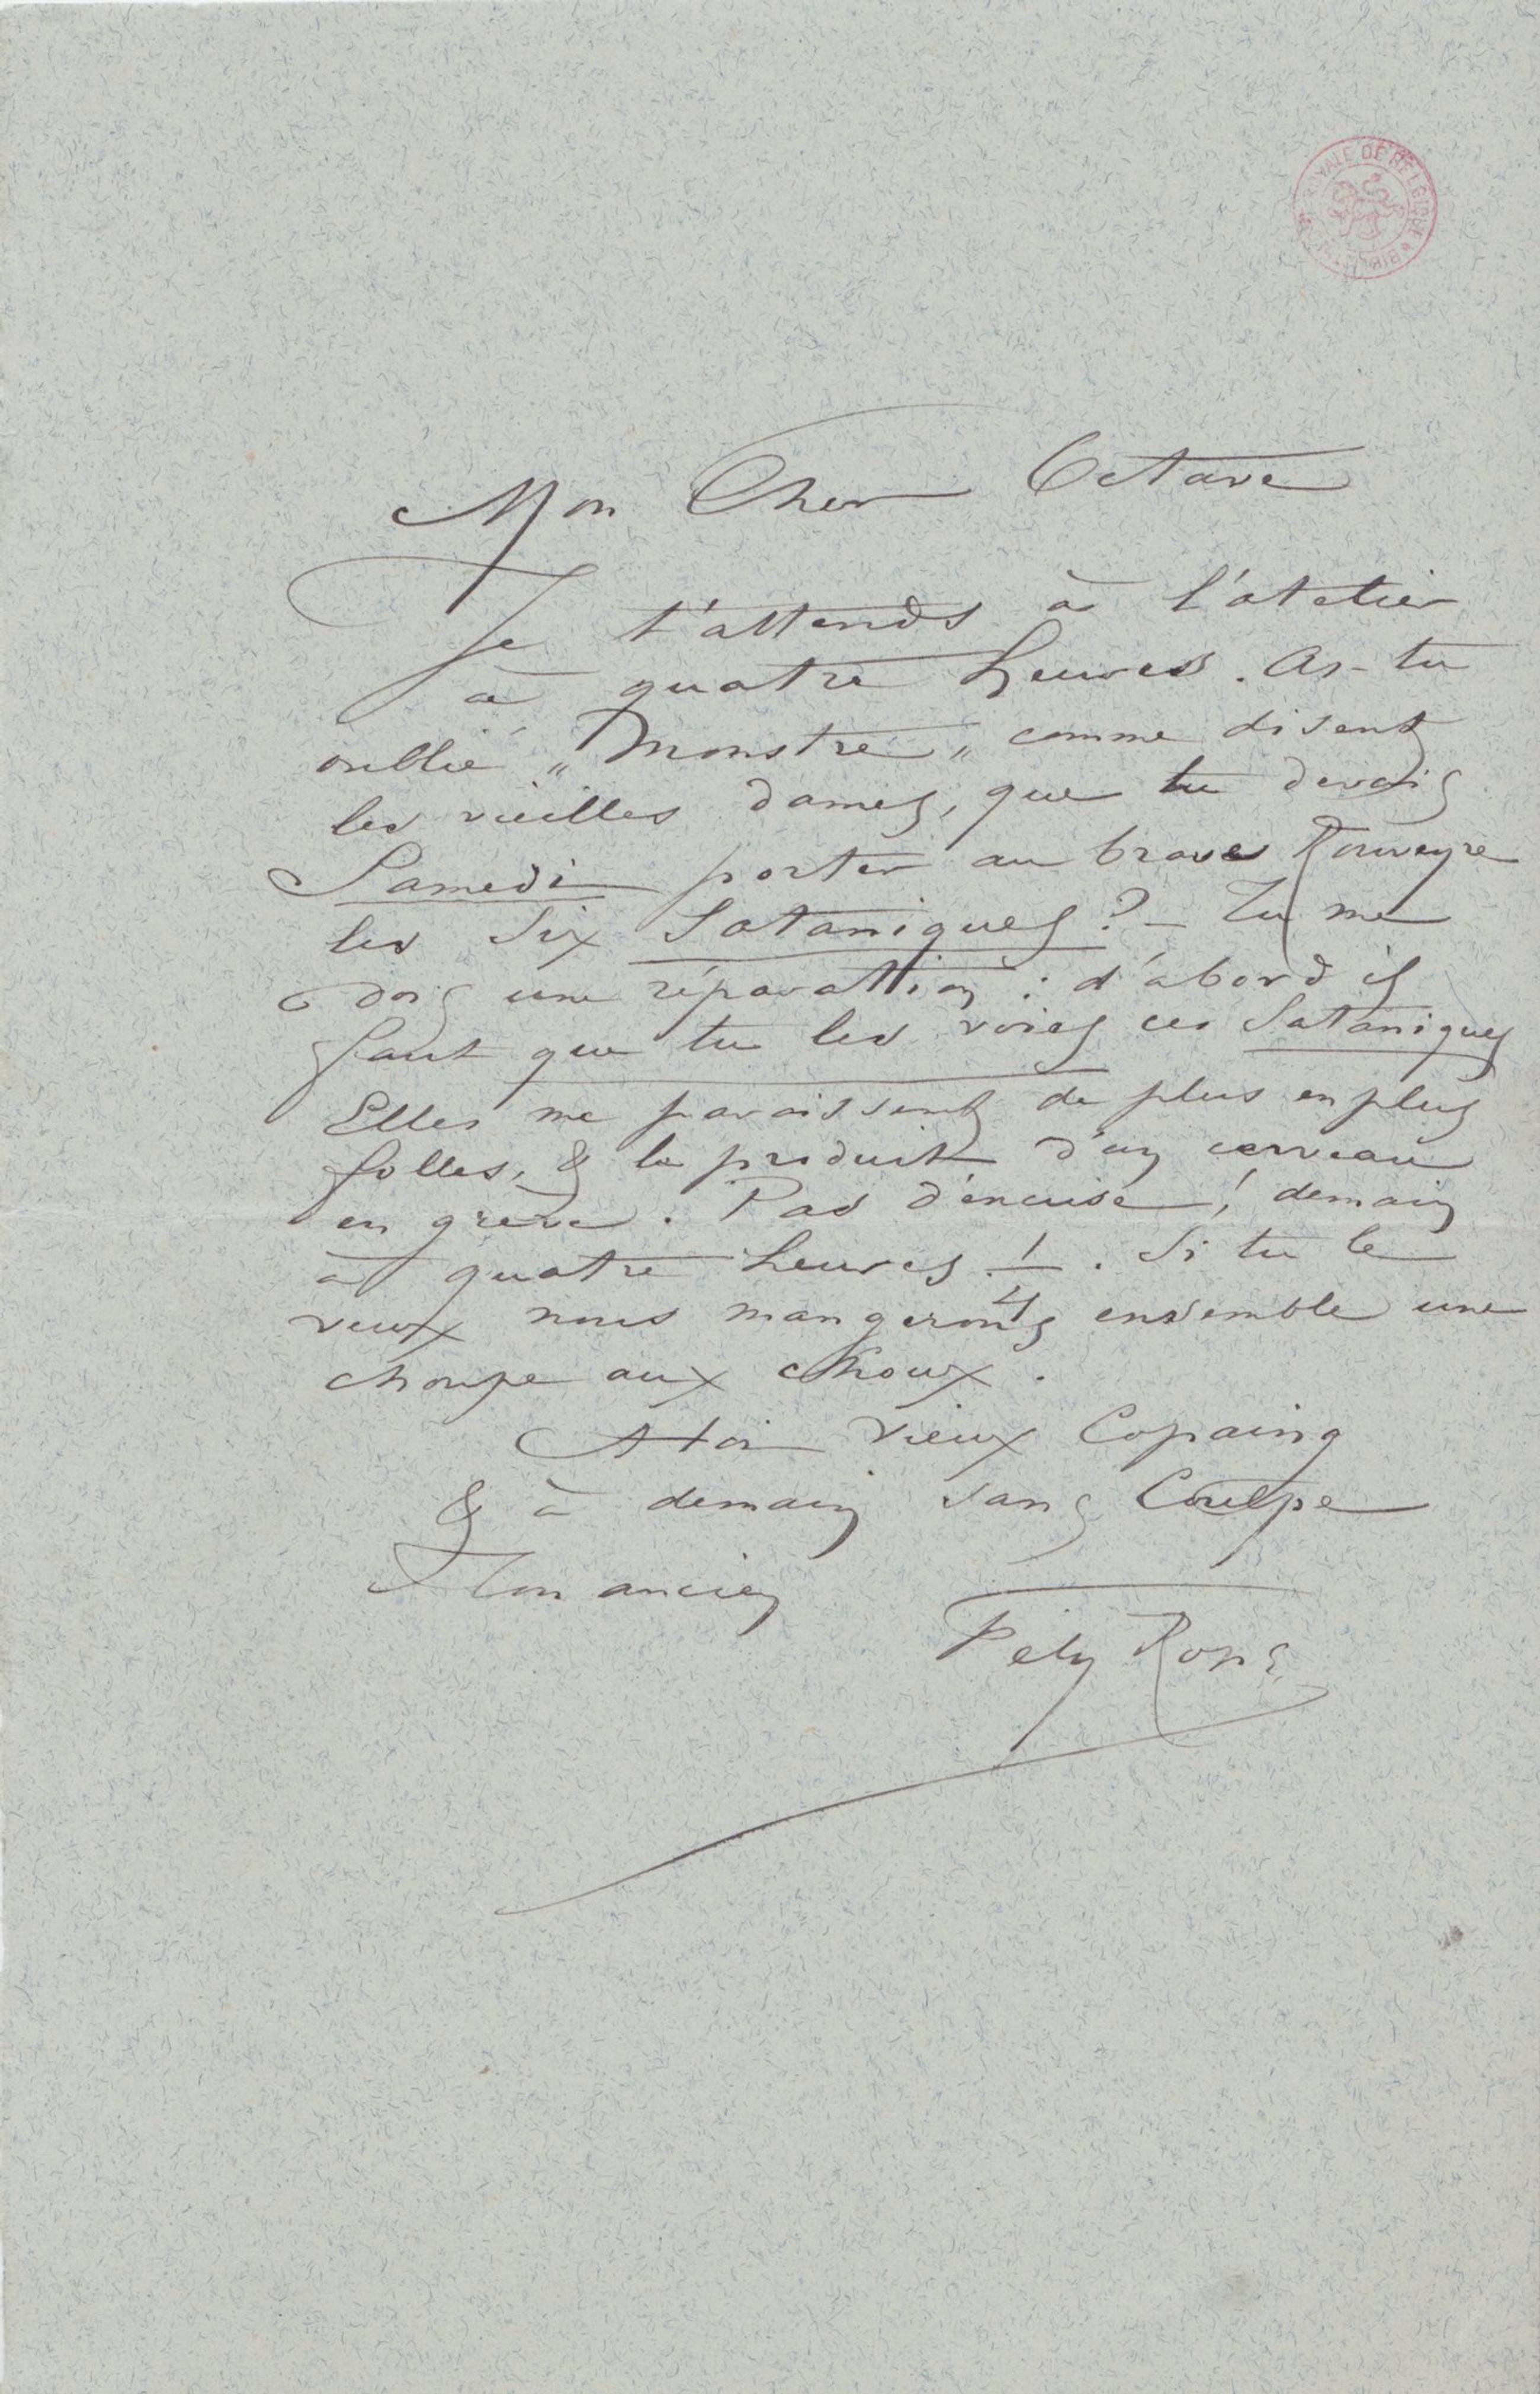 ROYALE DE BELGIQUE * BIB
Mon Cher Octave
Je t'attends à l'atelier
à quatre heures. As-tu
oublié „Monstre„ comme disent
les vieilles dames, que tu devais
Samedi porter au brave Rouveyre
les six Sataniques? – Tu me
dois une réparation : d'abord il
faut que tu les voies ces Sataniques
Elles me paraissent de plus en plus
folles, & le produit d'un cerveau
en grève. Pas d'excuse, ! demain
à quatre heures 1/4. Si tu le
veux nous mangerons ensemble une
choupe aux choux.
A toi vieux Copaing
& à demain sans Coulpe
Ton ancien
Fély Rops